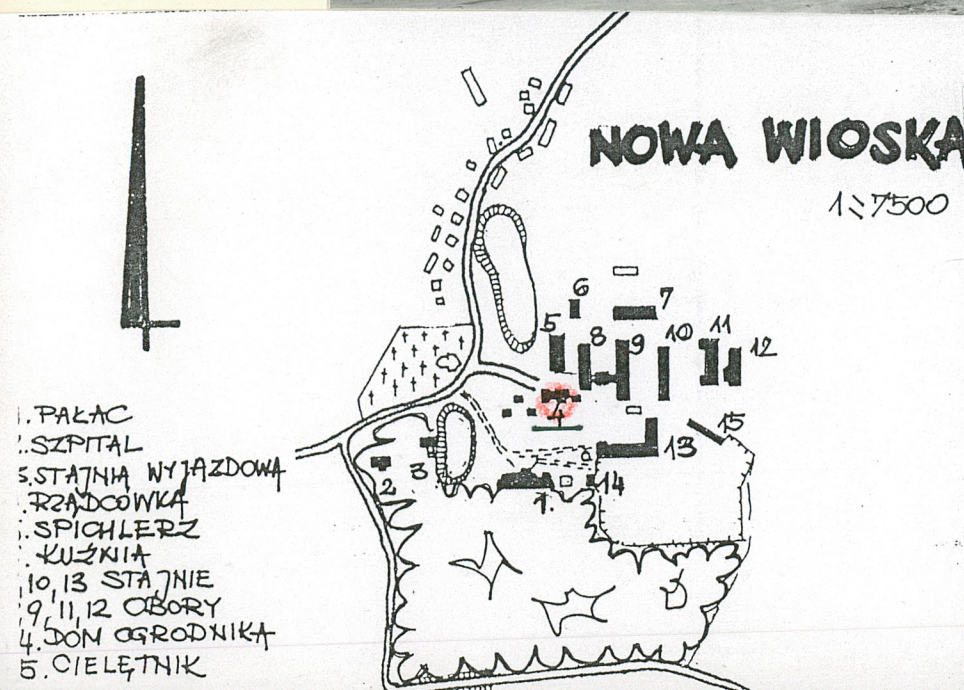 NOWA WIOSKA
1:7500
6
7
5
8
9
10
11
12
4
15
13
3
2
14
1.
1. PAŁAC
. SZPITAL
3. STAJNIA WYJAZDOWA
. RZĄDCÓWKA
. SPICHLERZ
. KUŹNIA
,10,13 STAJNIE
,9,11,12 OBORY
4. DOM OGRODNIKA
5. CIELĘTNIK